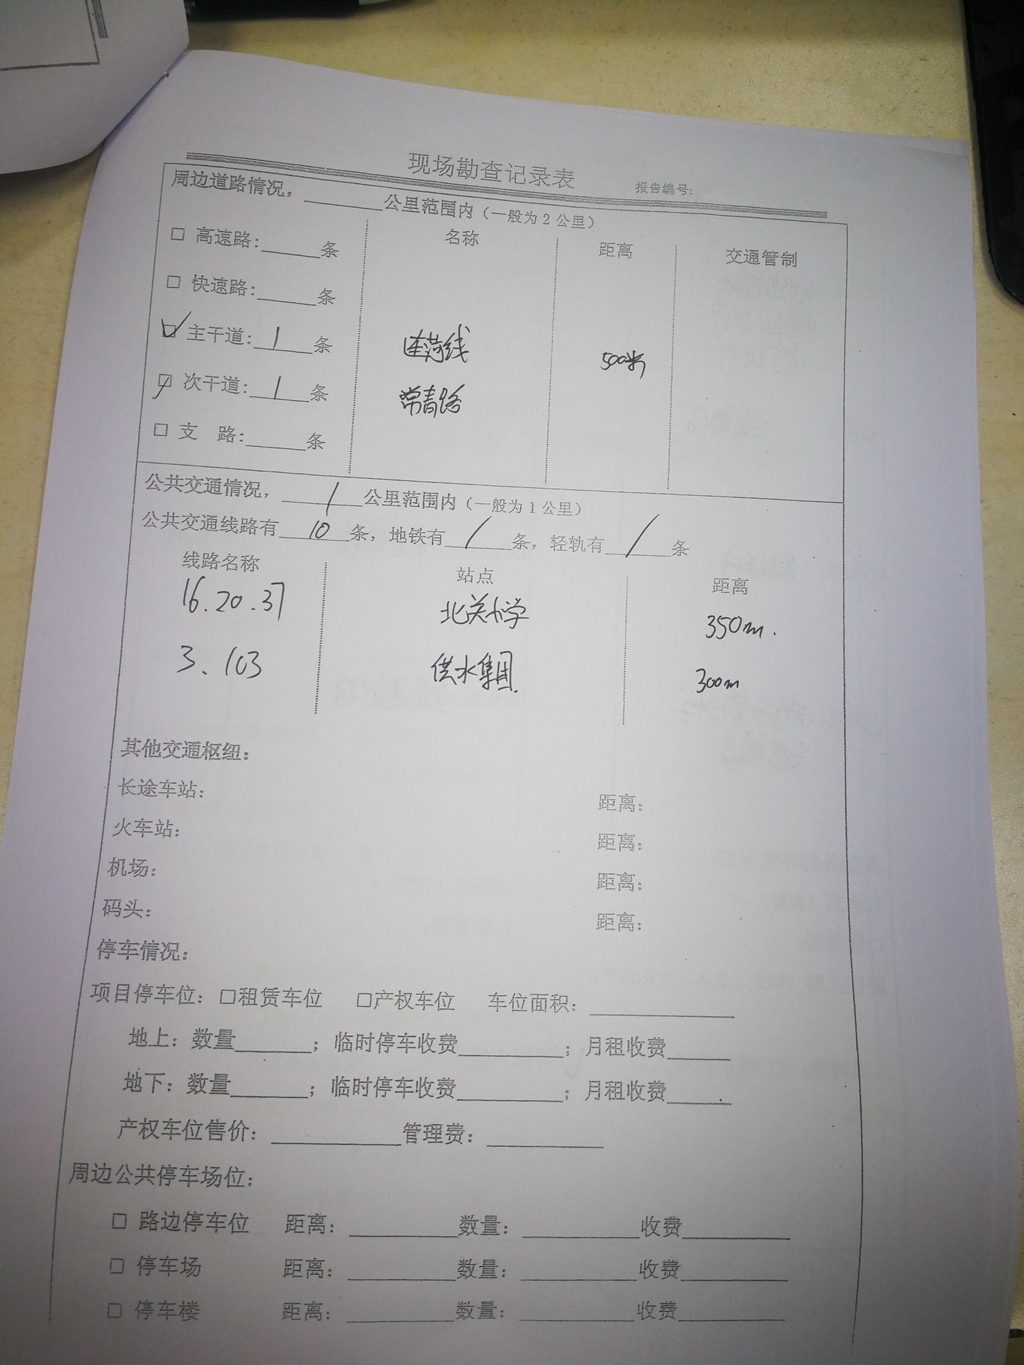 现场勘查记录表
报告编号:
周边道路情况，______公里范围内（一般为2公里）
名称 距离 交通管制
□ 高速路:_____条
□ 快速路:_____条
☑ 主干道: 1 条 连菏线 500米
☑ 次干道: 1 条 常青路
□ 支 路:_____条
公共交通情况， 1 公里范围内（一般为1公里）
公共交通线路有 10 条，地铁有 / 条，轻轨有 / 条
线路名称 站点 距离
16.20.37 北关小学 350m.
3、103 供水集团 300m
其他交通枢纽:
长途车站: 距离:
火车站: 距离:
机场: 距离:
码头: 距离:
停车情况:
项目停车位: □租赁车位 □产权车位 车位面积:__________
地上: 数量______; 临时停车收费________; 月租收费_____
地下: 数量______; 临时停车收费________; 月租收费_____
产权车位售价:__________管理费:_________
周边公共停车场位:
□ 路边停车位 距离:________数量:_________收费________
□ 停车场 距离:________数量:_________收费________
□ 停车楼 距离:________数量:_________收费________